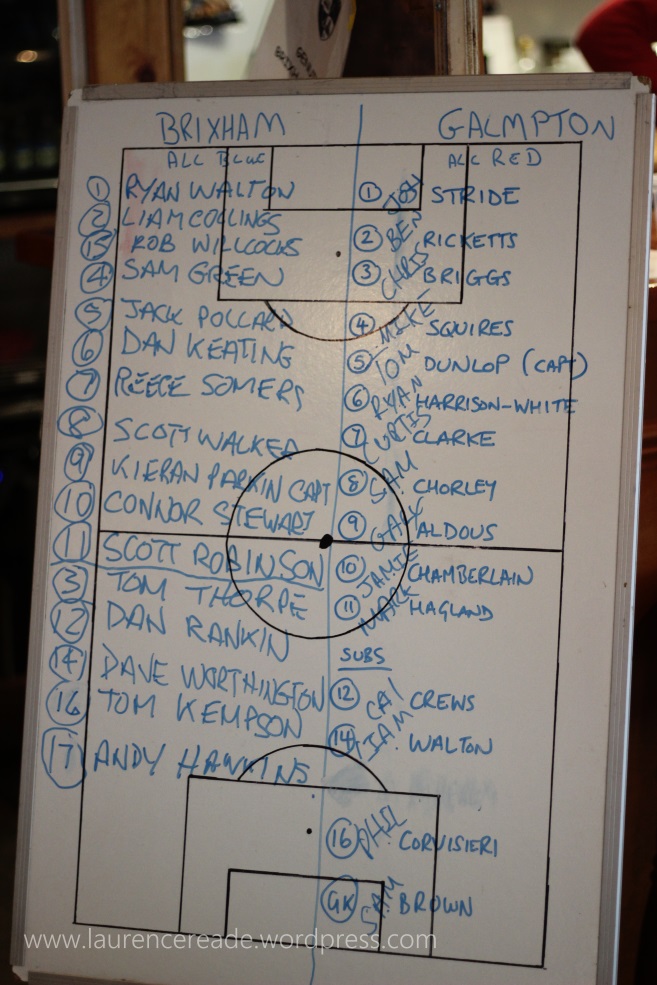 BRIXHAM
ALL BLUE
1 RYAN WALTON
2 LIAM COLLINGS
15 ROB WILLCOCKS
4 SAM GREEN
5 JACK POLLARD
6 DAN KEATING
7 REECE SOMERS
8 SCOTT WALKER
9 KIERAN PARKIN CAPT
10 CONNOR STEWART
11 SCOTT ROBINSON
3 TOM THORPE
12 DAN RANKIN
14 DAVE WORTHINGTON
16 TOM KEMPSON
17 ANDY HAWKINS
GALMPTON
ALL RED
1 JOSH STRIDE
2 BEN RICKETTS
3 CHRIS BRIGGS
4 MIKE SQUIRES
5 TOM DUNLOP (CAPT)
6 RYAN HARRISON-WHITE
7 CURTIS CLARKE
8 SAM CHORLEY
9 GARY ALDOUS
10 JAMIE CHAMBERLAIN
11 MARK HAGLAND
SUBS
12 CAI CREWS
14 LIAM WALTON
16 PHIL CORVISIERI
GK SAM BROWN
www.laurencereade.wordpress.com